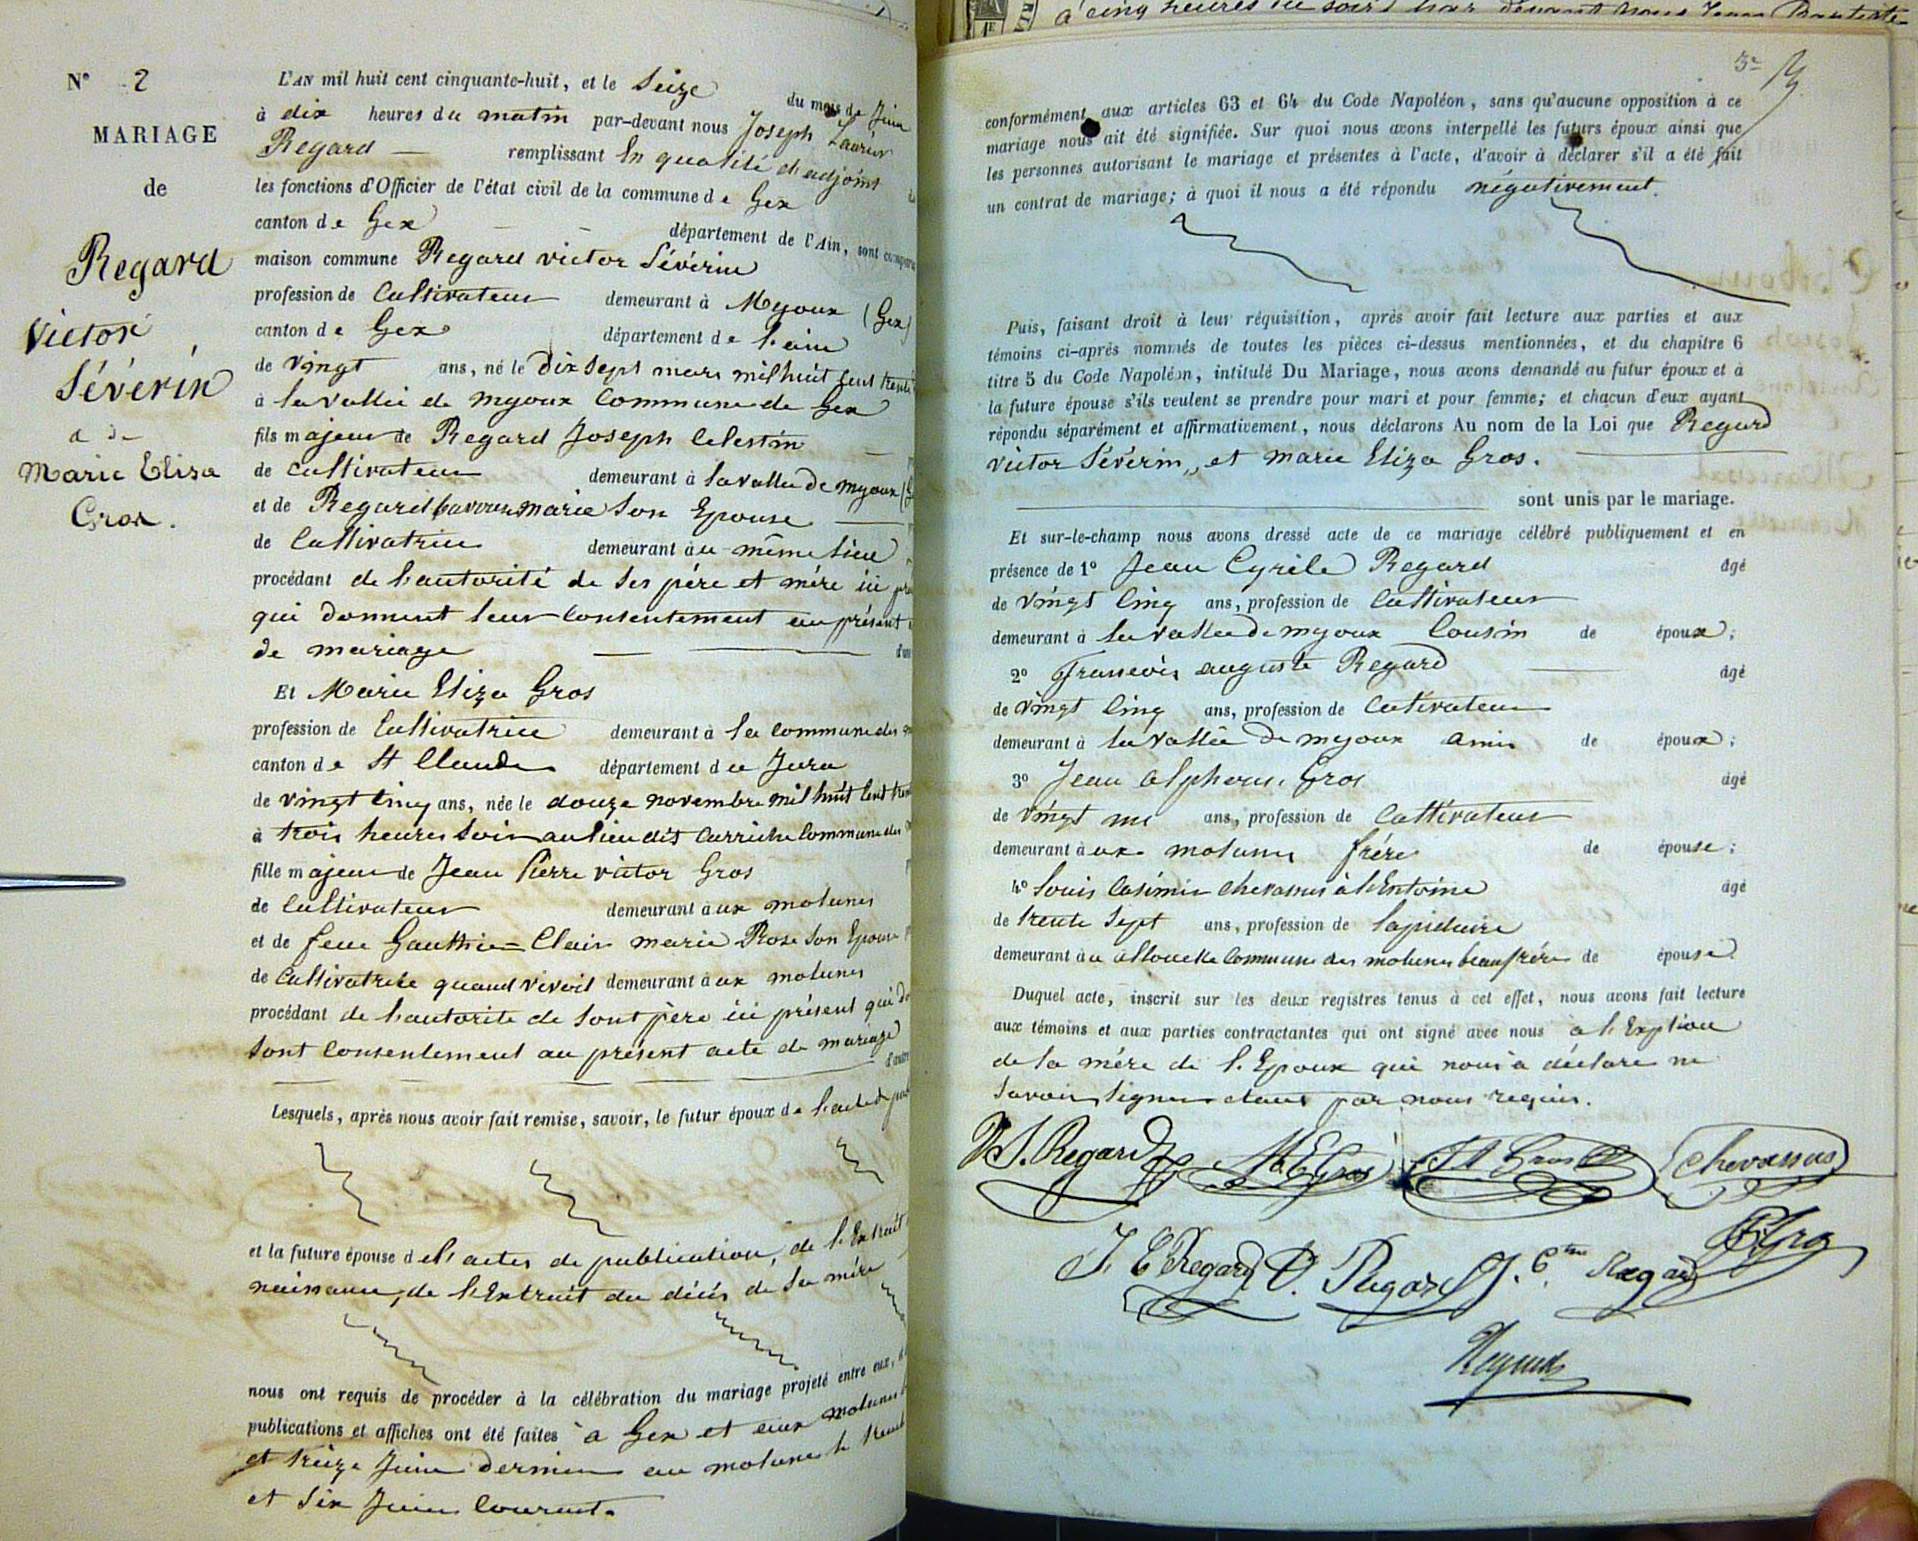 N° 2
MARIAGE
de
Regard
Victor
Sévérin
Marie Eliza
Gros.
L'AN mil huit cent cinquante-huit, et le Seize du mois de Juin
à dix heures du matin par-devant nous Joseph
Regard — remplissant En qualité d'adjoint
les fonctions d'Officier de l'état civil de la commune de Gex
canton de Gex département de l'Ain, sont
maison commune Regard victor Sévérin
profession de Cultivateur demeurant à Myoux (Gex)
canton de Gex département de l'ain
de vingt ans, né le Dix sept mars mil huit cent
à la vallée de myoux Commune de Gex
fils majeur de Regard Joseph Celestin
de Cultivateur demeurant à la vallee de myoux
et de Regard marie Son Epouse
de Cultivatrice demeurant au même lieu
procédant de l'autorité de ses père et mère ici
qui donnent leur consentement au présent
de mariage
Et Marie Eliza Gros
profession de Cultivatrice demeurant à la commune des
canton de St Claude département du Jura
de vingt cinq ans, née le douze novembre mil huit cent
à trois heures soir au lieu dit commune des
fille majeur de Jean Pierre victor Gros
de Cultivateur demeurant aux molunes
et de feue Gauthier=Clair marie Rose Son Epouse
de Cultivatrice quand vivoit demeurant aux molunes
procédant de l'autorite de sont père ici présent qui
sont consentement au présent acte de mariage
Lesquels, après nous avoir fait remise, savoir, le futur époux de l'acte de
et la future épouse d el' actes de publication, de l'Extrait
naissance, de l'Extrait du décès de Sa mère
nous ont requis de procéder à la célébration du mariage projeté entre eux,
publications et affiches ont été faites à Gex et aux molunes
et treize Juin dernier au molunes le
et Six Juin Courant.
à cinq heures du soir par devant nous Jean Baptiste
conformément aux articles 63 et 64 du Code Napoléon, sans qu'aucune opposition à ce
mariage nous ait été signifiée. Sur quoi nous avons interpellé les futurs époux ainsi que
les personnes autorisant le mariage et présentes à l'acte, d'avoir à déclarer s'il a été fait
un contrat de mariage; à quoi il nous a été répondu négativement.
Puis, faisant droit à leur réquisition, après avoir fait lecture aux parties et aux
témoins ci-après nommés de toutes les pièces ci-dessus mentionnées, et du chapitre 6
titre 5 du Code Napoléon, intitulé Du Mariage, nous avons demandé au futur époux et à
la future épouse s'ils veulent se prendre pour mari et pour femme; et chacun d'eux ayant
répondu séparément et affirmativement, nous déclarons Au nom de la Loi que Regard
victor Sévérin, et marie Eliza Gros.
sont unis par le mariage.
Et sur-le-champ nous avons dressé acte de ce mariage célébré publiquement et en
présence de 1° Jean Cyrile Regard âgé
de vingt Cinq ans, profession de Cultivateur
demeurant à la vallée de myoux Cousin de époux;
2° francois auguste Regard âgé
de vingt Cinq ans, profession de Cultivateur
demeurant à la vallée de myoux amis de époux;
3° Jean alphonse Gros âgé
de vingt un ans, profession de Cultivateur
demeurant aux molunes frère de épouse;
4° Louis Casimir chevassus à l'Entoine âgé
de trente Sept ans, profession de lapidaire
demeurant au commune des molunes beaufrère de épouse
Duquel acte, inscrit sur les deux registres tenus à cet effet, nous avons fait lecture
aux témoins et aux parties contractantes qui ont signé avec nous a l'Exption
de la mère de l'Epoux qui nous a déclare ne
savoir signer etant par nous requis.
V S. Regard M E Gros J A Gros Chevassus
J. C Regard Regard J. C. Regard
Regard